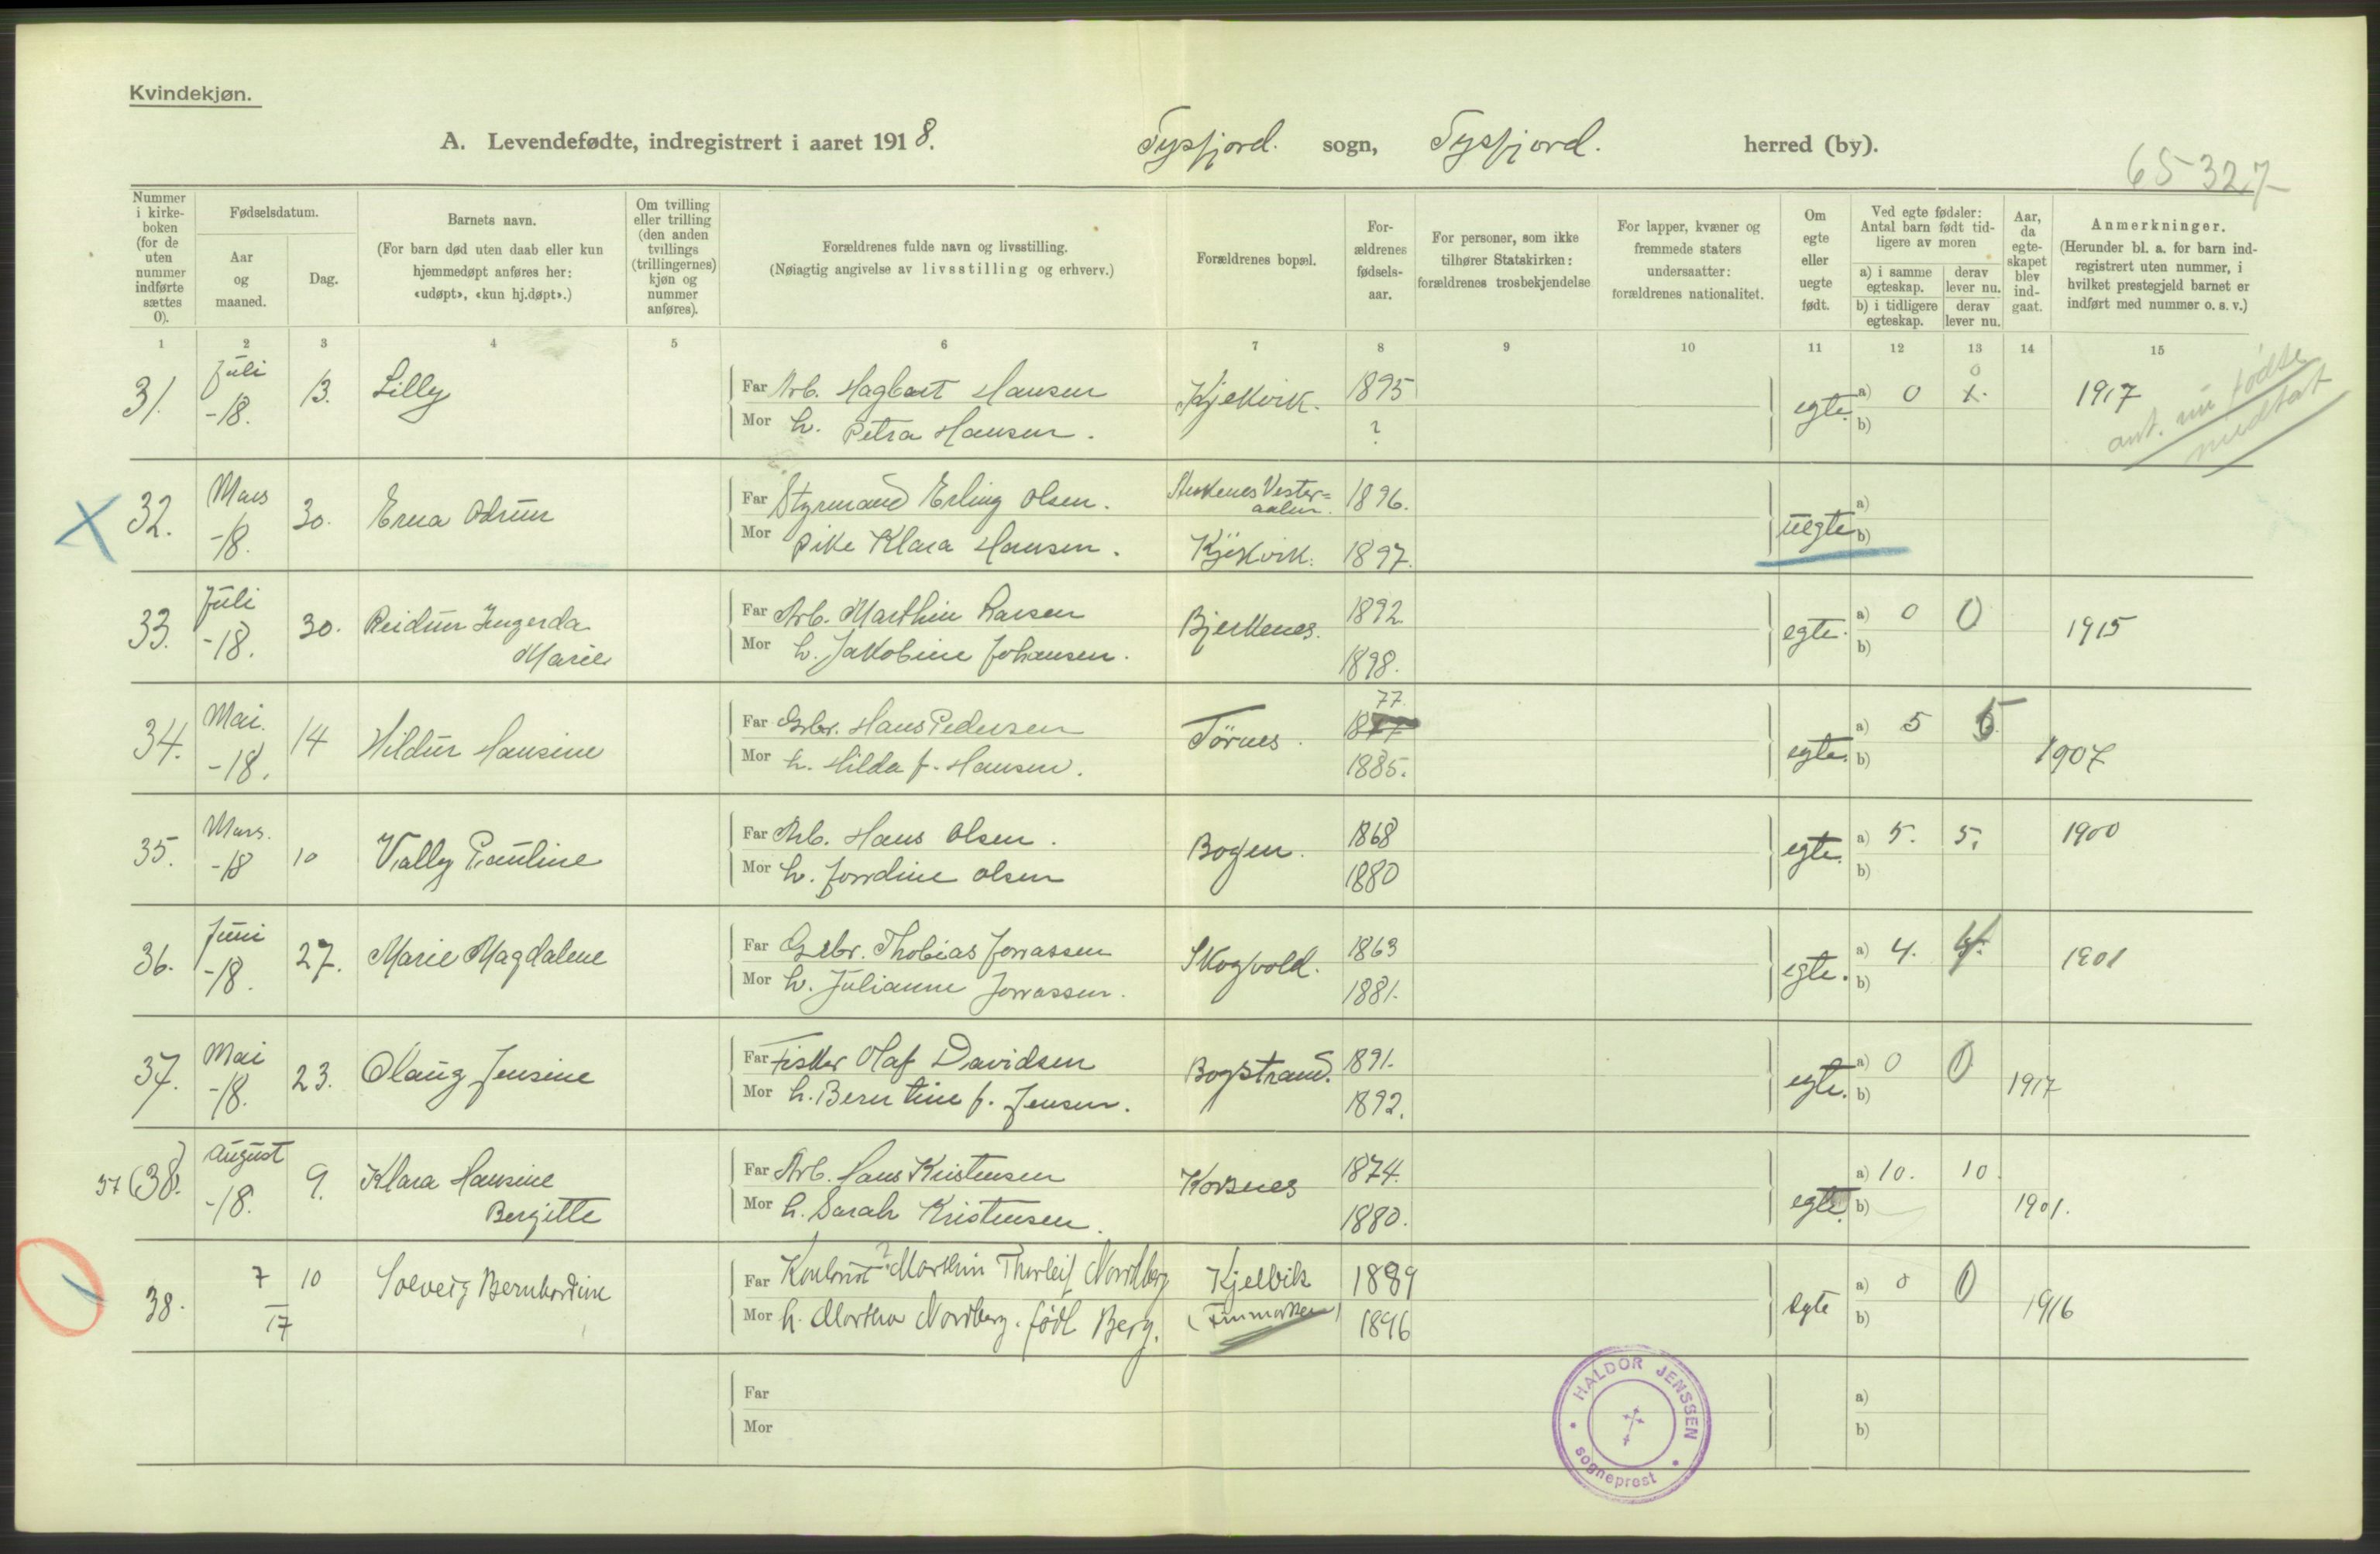 Kvindekjøn.
A. Levendefødte, indregistrert i aaret 1918. Tysfjord. sogn, Tysfjord. herred (by).
65-327
Nummer i kirkeboken (for de uten nummer indførte sættes 0).
Fødselsdatum.
Aar og maaned.
Dag.
Barnets navn.
(For barn død uten daab eller kun hjemmedøpt anføres her: «udøpt», «kun hj.døpt».)
Om tvilling eller trilling (den anden tvillings (trillingernes) kjøn og nummer anføres).
Forældrenes fulde navn og livsstilling.
(Nøiagtig angivelse av livsstilling og erhverv.)
Forældrenes bopæl.
Forældrenes fødselsaar.
For personer, som ikke tilhører Statskirken: forældrenes trosbekjendelse
For lapper, kvæner og fremmede staters undersaatter: forældrenes nationalitet.
Om egte eller uegte født.
Ved egte fødsler: Antal barn født tidligere av moren
a) i samme egteskap. derav lever nu.
b) i tidligere egteskap. derav lever nu.
Aar, da egteskapet blev indgaat.
Anmerkninger.
(Herunder bl. a. for barn indregistrert uten nummer, i hvilket prestegjeld barnet er indført med nummer o. s. v.)
1 2 3 4 5 6 7 8 9 10 11 12 13 14 15
31. Juli -18. 13. Lilly Far Arb. Hagbart Hansen Kjekvik. 1895 egte. a) 0 x. 0 1917
Mor h. Petra Hansen. ? b)
ant. nu fødte medtat
32. Mars -18. 30. Erna Odrun Far Styrmand Erling Olsen. Vesteraalen. 1896. uegte a)
Mor pike Klara Hansen. Kjekvik. 1897. b)
33. Juli -18. 30. Reidun Ingerda Marie Far Arb. Marthin Larsen Bjerkenes. 1892 egte. a) 0 0 1915
Mor h. Jakobine Johansen. 1898. b)
34. Mai. -18. 14 Hildur Hansine Far Gbr. Hans Pedersen Tørnes. 77. 1877 egte. a) 5 5 1907
Mor h. Hilda f. Hansen. 1885. b)
35. Mars. -18 10 Vally Pauline Far Arb. Hans Olsen. Bogen. 1868 egte. a) 5. 5. 1900
Mor h. Jordine Olsen 1880 b)
36. Juni -18. 27. Marie Magdalene Far Gbr. Thobias Jonassen Skogvold. 1863 egte. a) 4. 4. 1901
Mor h. Julianne Jonassen. 1881. b)
37. Mai -18. 23. Olaug Jensine Far Fisker Olaf Davidsen Bogstrand. 1891. egte. a) 0 0 1917
Mor h. Berntine f. Jensen. 1892. b)
37 (38.) August -18. 9. Klara Hansine Bergitte Far Arb. Hans Kristensen Korsnes 1874. egte. a) 10. 10 1901.
Mor h. Sarah Kristensen. 1880. b)
38. 7/17 10 Solveig Bernhardine Far Kontorist ? Marthin Thorleif Nordberg Kjelvik 1889 egte a) 0 0 1916
Mor h. Martha Nordberg. født Berg. (Finmarken) 1896 b)
Far a)
Mor b)
HALDOR JENSSEN sogneprest